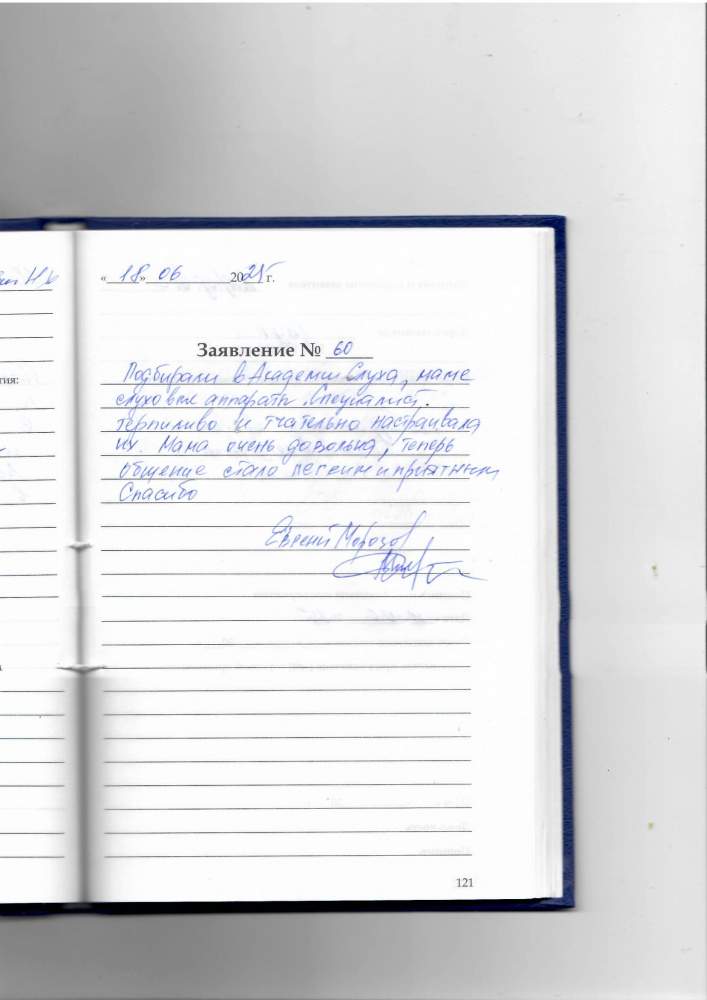 «18» 06 2025 г.
Заявление № 60
Подбирали в Академии Слуха, маме
слуховые аппараты. Специалист
терпиливо и тчательно настраивала
их. Мама очень довольна, теперь
общение стало легким и приятным
Спасибо
Евгений Морозов
гия:
121